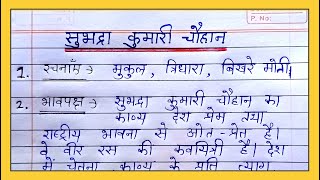 P. No:
सुभद्रा कुमारी चौहान
1. रचनाएँ → मुकुल, त्रिधारा, बिखरे मोती।
2. भावपक्ष → सुभद्रा कुमारी चौहान का
काव्य देश प्रेम तथा
राष्ट्रीय भावना से ओत-प्रेत है।
वे वीर रस की कवयित्री हैं। देश
में चेतना काव्य के प्रति त्याग